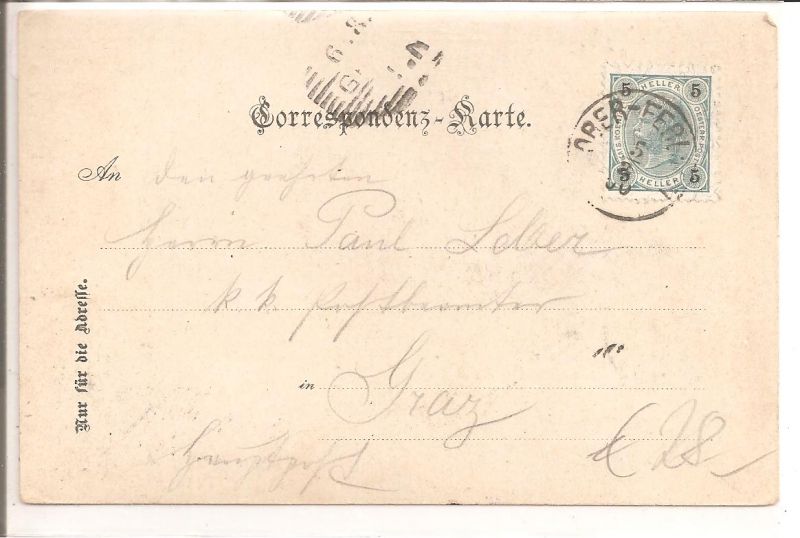 Correspondenz-Karte.
5 HELLER 5
OBER-FERL
5 HELLER 5
An den geehrten
Herrn Paul
k.k. Postbeamter
in Graz
Hauptpost
28
Nur für die Adresse.